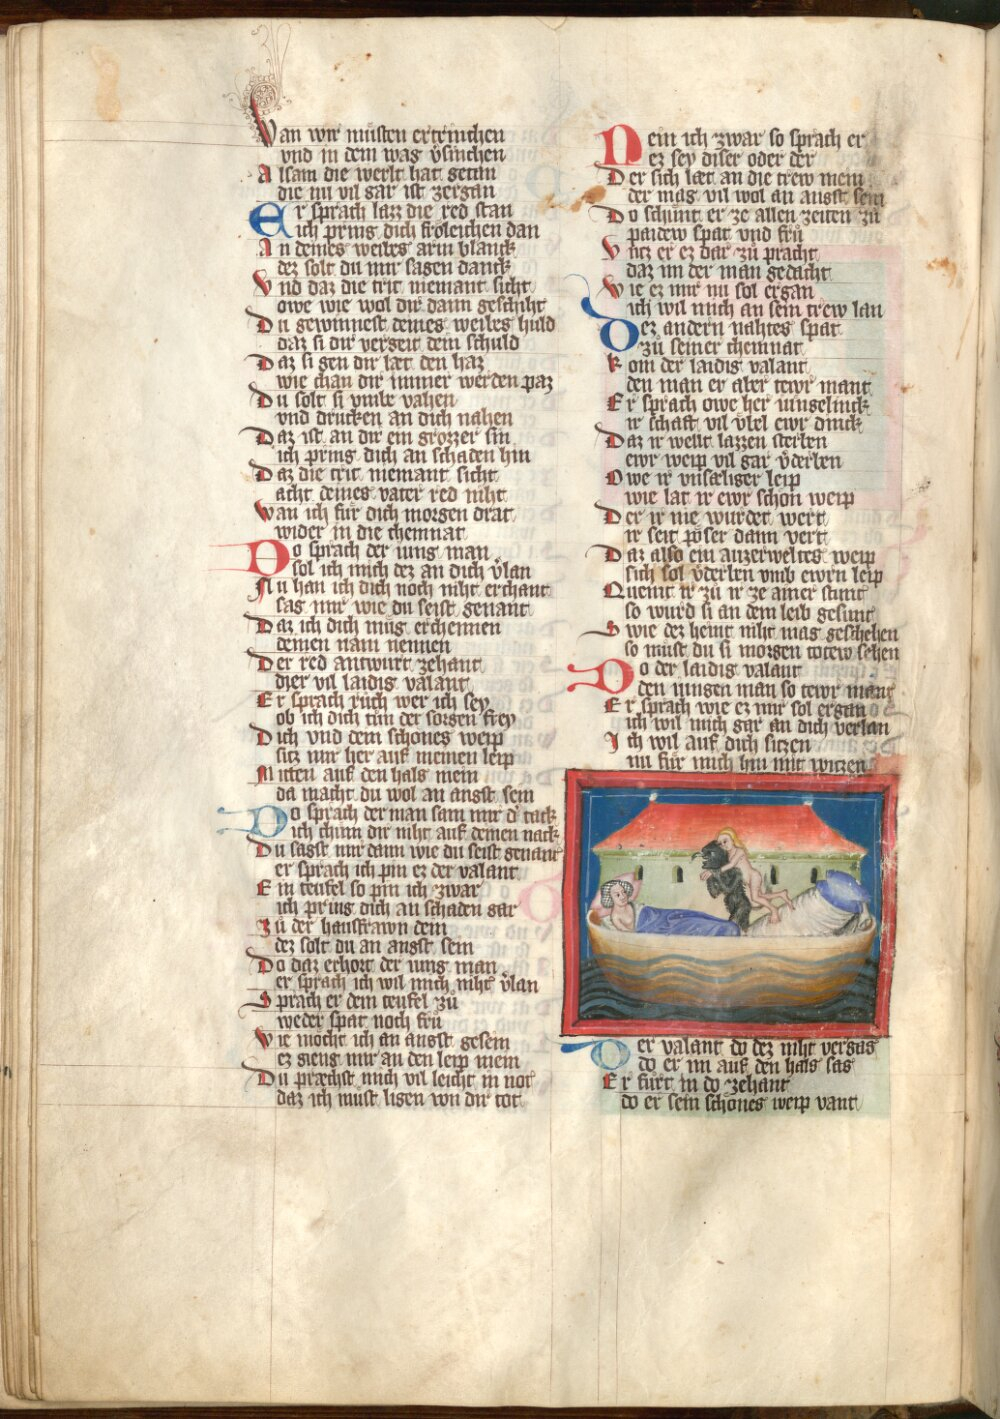 Van wir můsten ertrinchen
vnd in dem wag v̓sinchen
Alsam die werlt hat getan
die nu vil gar ist zergan
Er sprach lazz die red stan
ich pring dich froleichen dan
An deines weibes arm blanck
dez solt du mir sagen danck
Vnd daz die trit niemant sicht
owe wie wol dir dann geschiht
Du gewinnest deines weibes huld
daz si dir vergeit dein schuld
Daz si gen dir læt den haz
wie chan dir immer werden paz
Du solt si vmbe vahen
vnd drucken an dich nahen
Daz ist an dir ein grozzer sin
ich pring dich an schaden hin
Daz die trit niemant sicht
acht deines vater red niht
Wan ich für dich morgen drat
wider in die chemnat
Do sprach der iung man
sol ich mich dez an dich v̓lan
Nu han ich dich noch niht erchant
sag mir wie du seist genant
Daz ich dich müg erchennen
deinen nam nennen
Der red antwurt zehant
dier vil laidig valant
Er sprach růch wer ich sey
ob ich dich tůn der sorgen frey
Dich vnd dein schönes weip
sitz mir her auf meinen leip
Mitten auf den hals mein
da macht du wol an angst sein
Do sprach der man sam mir d̓ tack
ich chum dir niht auf deinen nack
Du sagst mir dann wie du seist genant
er sprach ich pin ez der valant
Ein teufel so pin ich zwar
ich pring dich an schaden gar
Zů der hausfrawn dein
dez solt du an angst sein
Do daz erhort der iung man
er sprach ich wil mich niht v̓lan
Sprach er dem teufel zů
weder spat noch frů
Wie mocht ich an angst gesein
ez gieng mir an den leip mein
Du præchst mich vil leicht in not
daz ich můst ligen von dir tot
Nein ich zwar so sprach er
ez sey diser oder der
Der sich læt an die trew mein
der mag vil wol an angst sein
Do schünt er ze allen zeiten zů
paidew spat vnd frů
Vntz er ez dar zů pracht
daz im der man gedacht
Wie ez mir nu sol ergan
ich wil mich an sein trew lan
Dez andern nahtes spat
zů seiner chemnat
Kom der laidig valant
den man er aber tewr mant
Er sprach owe her iungelinck
ir schaft vil v̓bel ewr dinck
Daz ir wellt lazzen sterben
ewr weip vil gar v̓derben
Owe ir vnsæliger leip
wie lat ir ewr schon weip
Der ir nie wurdet wert
ir seit pöser dann vert
Daz also ein auzerweltes weip
sich sol v̓derben vmb ewrn leip
Quemt ir zů ir ze ainer stunt
so wurd si an dem leib gesunt
Swie dez heint niht mag geschehen
so müst du si morgen totew sehen
Do der laidig valant
den iungen man so tewr mant
Er sprach wie ez mir sol ergan
ich wil mich gar an dich verlan
Ich wil auf dich sitzen
nu für mich hin mit witzen
Der valant do dez niht vergas
do er im auf den hals sas
Er fürt in do zehant
do er sein schönes weip vant